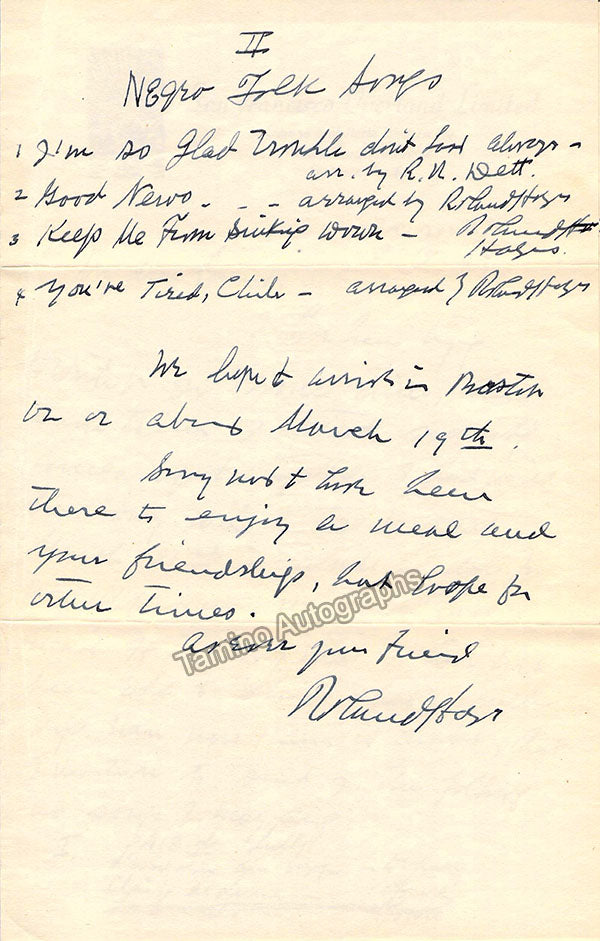 II
Negro Folk Songs
1 I'm so Glad Trouble don't Last always -
arr. by R. N. Dett.
2 Good News - - - arranged by Roland Hayes
3 Keep Me From Sinking Down - Roland
Hayes.
4 You're Tired, Chile - arranged by Roland Hayes
We hope to arrive in Boston
on or about March 19th.
Sorry not to have been
there to enjoy a meal and
your friendships, but hope for
other times.
As ever your friend
Roland Hayes
Tamino Autographs